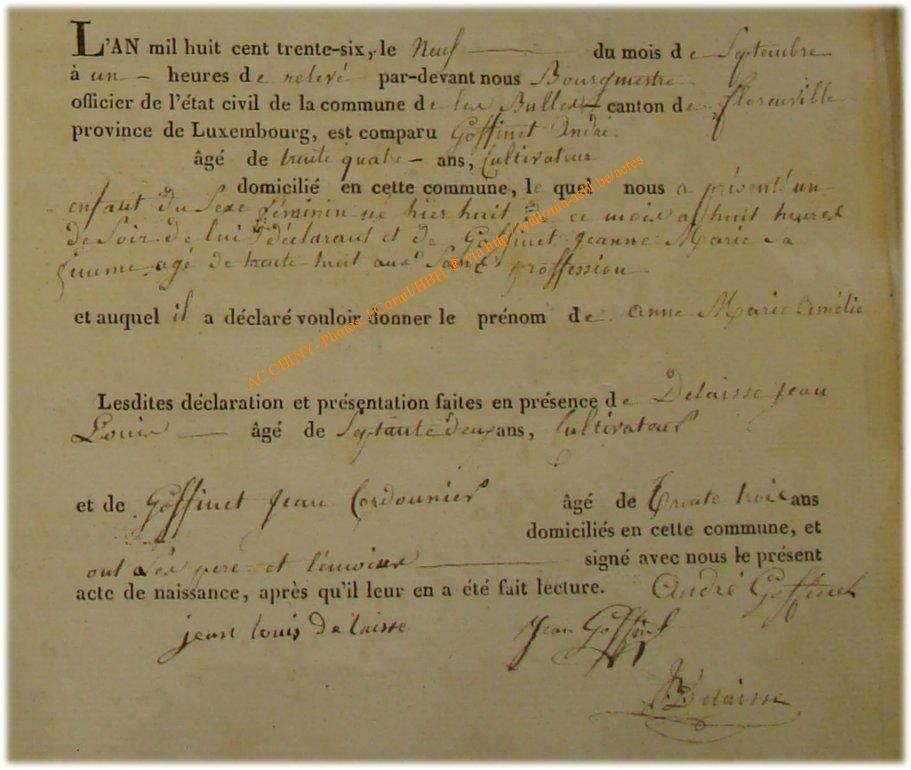 L'AN mil huit cent trente-six, le Neuf du mois de Septembre
à un heures de relevé par-devant nous Bourgmestre
officier de l'état civil de la commune de les Bulles canton de florenville
province de Luxembourg, est comparu Goffinet André
âgé de trente quatre ans, Cultivateur
domicilié en cette commune, le quel nous a présenté un
enfant du Sexe féminin né hier huit de ce mois a huit heures
de Soir de lui déclarant et de Goffinet Jeanne Marie Sa
femme agé de trente huit ans Sans proffession
et auquel il a déclaré vouloir donner le prénom de anne Marie Amélie
Lesdites déclaration et présentation faites en présence de Delaisse Jean
Louis âgé de Septante deux ans, Cultivateur
et de Goffinet Jean Cordounier âgé de Trente trois ans
domiciliés en cette commune, et
ont Les pere et témoins signé avec nous le présent
acte de naissance, après qu'il leur en a été fait lecture. André Goffinet
jean louis delaisse Jean Goffinet
Delaisse
AC CHINY - Photos J Cornil HBH